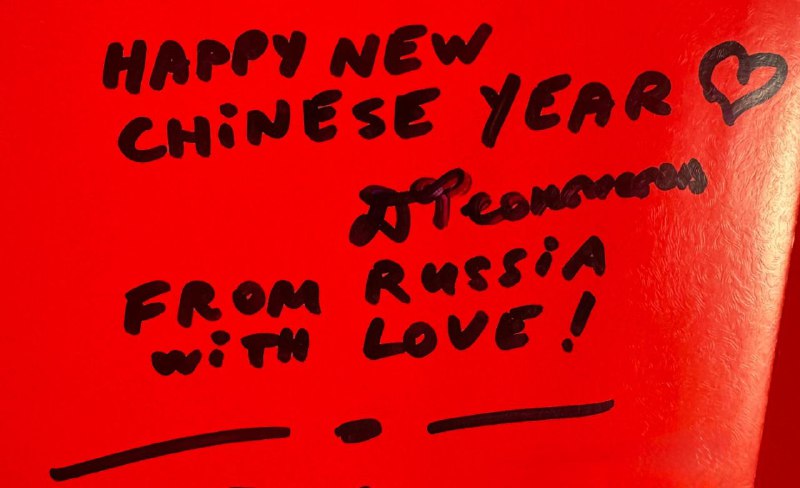 HAPPY NEW
CHiNESE YEAR
FROM RUSSiA
WiTH LOVE!